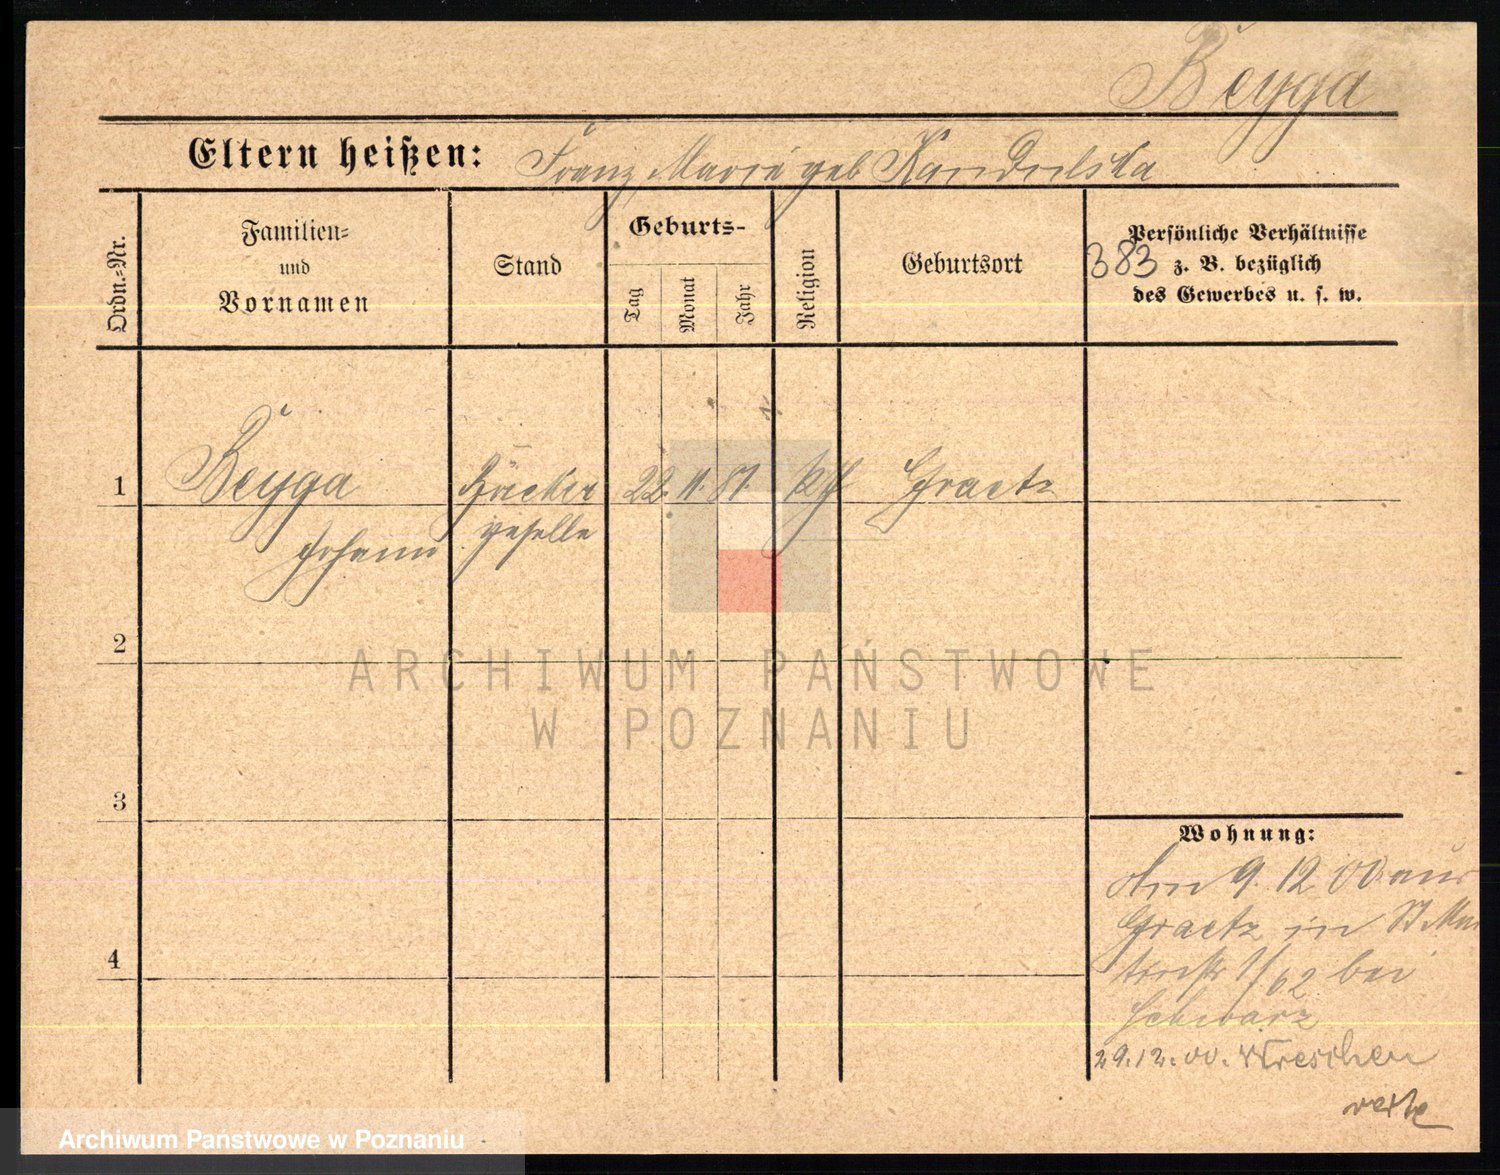 Beyga
Eltern heißen: Franz, Marie geb Kandulska
Ordn.-Nr.
Familien-
und
Vornamen
Stand
Geburts-
Tag
Monat
Jahr
Religion
Geburtsort
Persönliche Verhältnisse
z. B. bezüglich
des Gewerbes u. s. w.
383
1 Beyga Bäcker 22. 11. 81. Graetz
Johann geselle
2
3
4
ARCHIWUM PAŃSTWOWE
W POZNANIU
Wohnung:
Am 9. 12 00 aus
Graetz in St Mar
tinstr 1/62 bei
Schwarz
29.12.00. Wreschen
Archiwum Państwowe w Poznaniu